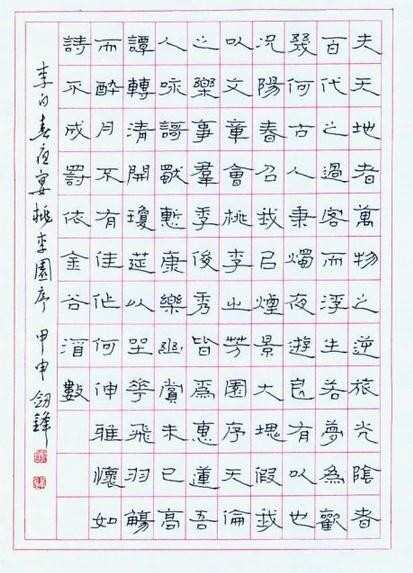 夫天地者萬物之逆旅光陰者
百代之過客而浮生若夢為歡
幾何古人秉燭夜遊良有以也
況陽春召我以煙景大塊假我
以文章會桃李之芳園序天倫
之樂事羣季俊秀皆爲惠蓮吾
人咏謌獨慙康樂幽賞未已高
譚轉清開瓊筵以坐華飛羽觴
而醉月不有佳作何伸雅懷如
詩不成罰依金谷酒數
李白春夜宴桃李園序 甲申 劒鋒